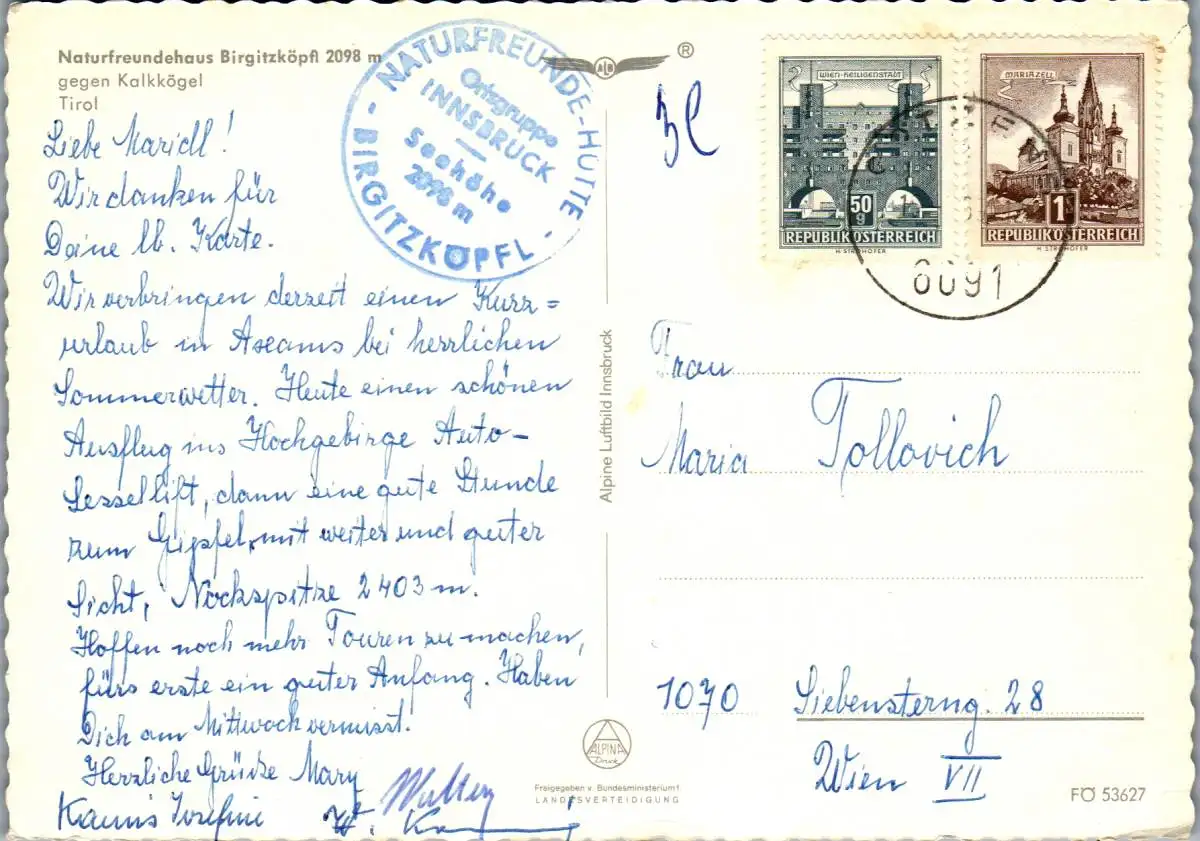 Naturfreundehaus Birgitzköpfl 2098 m
gegen Kalkkögel
Tirol
NATURFREUNDE-HÜTTE
Ortsgruppe
INNSBRUCK
Seehöhe
2098 m
- BIRGITZKÖPFL -
ALB
®
3l
WIEN-HEILIGENSTADT
50
g
REPUBLIK ÖSTERREICH
H. STROHOFER
MARIAZELL
1
REPUBLIK ÖSTERREICH
H. STROHOFER
6091
Liebe Maridl!
Wir danken für
Deine lb. Karte.
Wir verbringen derzeit einen Kurz=
urlaub in Axams bei herrlichen
Sommerwetter. Heute einen schönen
Ausflug ins Hochgebirge Auto-
Sessellift, dann eine gute Stunde
zum Gipfel, mit weiter und guter
Sicht, Nockspitze 2403 m.
Hoffen noch mehr Touren zu machen,
fürs erste ein guter Anfang. Haben
Dich am Mittwoch vermisst.
Herzliche Grüsse Mary
Josefini
Alpine Luftbild Innsbruck
Frau
Maria Tollovich
1070 Siebensterng. 28
Wien VII
ALPINA
Druck
Freigegeben v. Bundesministerium f.
LANDESVERTEIDIGUNG
FÖ 53627